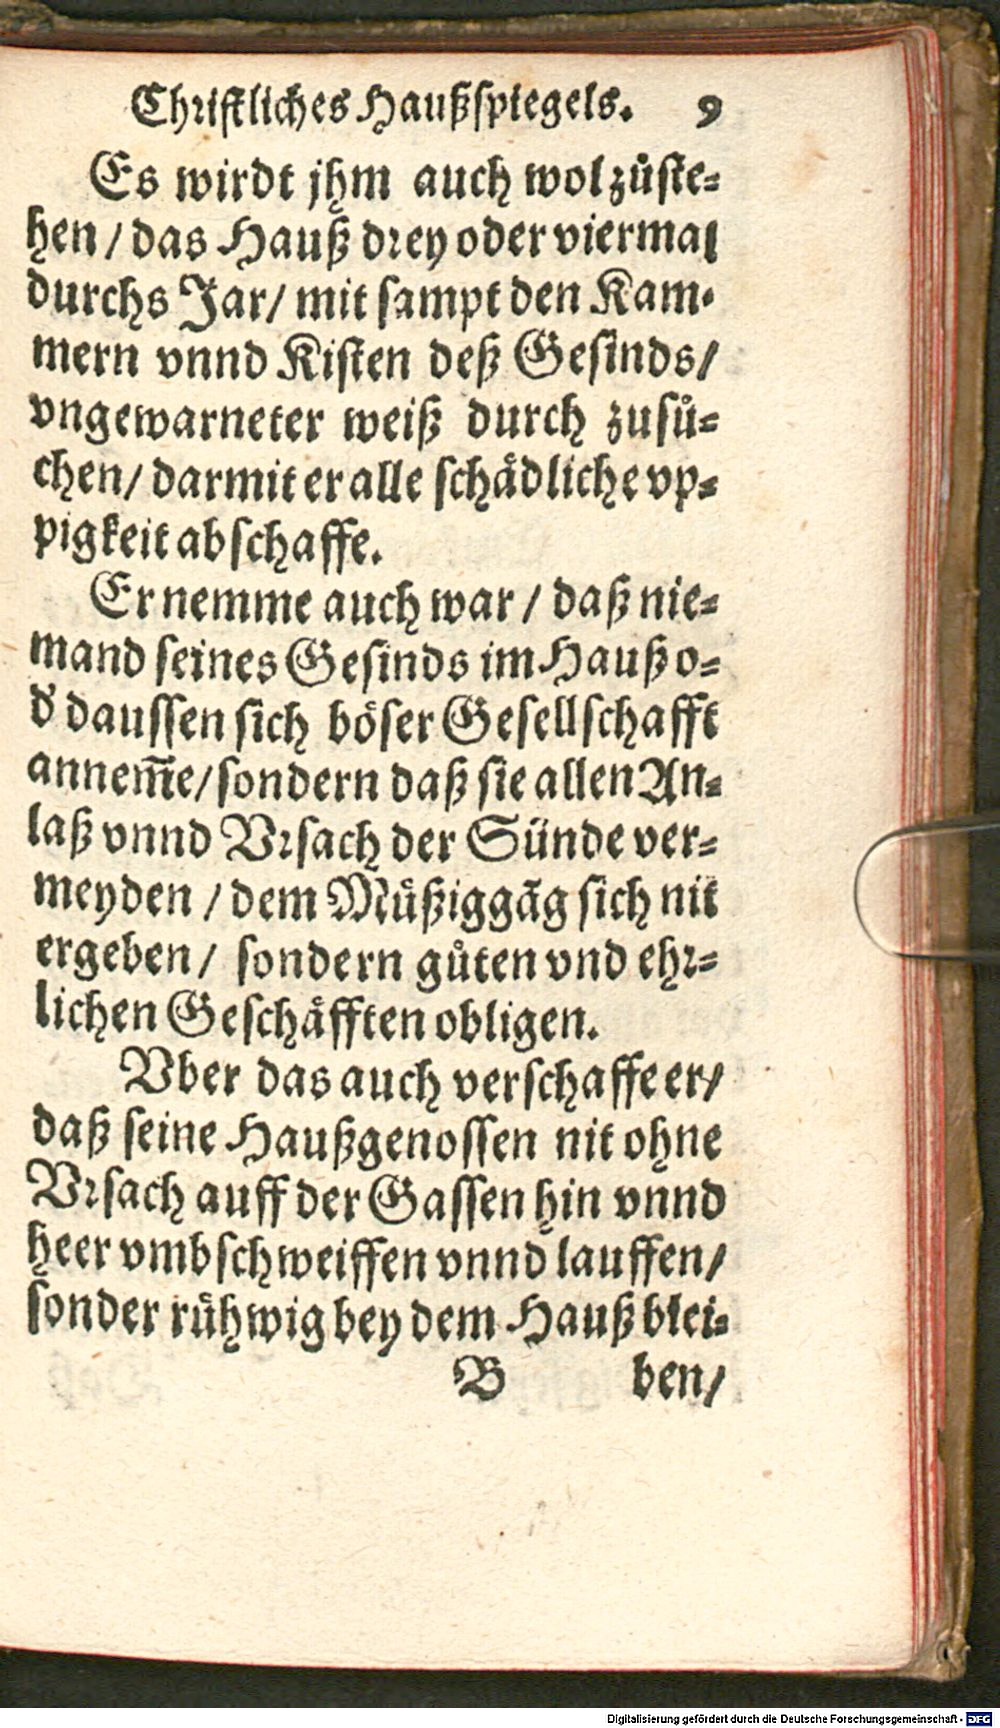 Chriſtliches Haußſpiegels. 9
Es wirdt jhm auch wol zůſte⸗
hen / das Hauß drey oder viermal
durchs Jar / mit ſampt den Kam⸗
mern vnnd Kiſten deß Geſinds /
vngewarneter weiß durch zuſů⸗
chen / darmit er alle ſchådliche vp⸗
pigkeit abſchaffe.
Er nemme auch war / daß nie⸗
mand ſeines Geſinds im Hauß o⸗
d' dauſſen ſich böſer Geſellſchafft
annem̄e / ſondern daß ſie allen An⸗
laß vnnd Vrſach der Sünde ver⸗
meyden / dem Můßiggāg ſich nit
ergeben / ſondern gůten vnd ehr⸗
lichen Geſchåfften obligen.
Vber das auch verſchaffe er /
daß ſeine Haußgenoſſen nit ohne
Vrſach auff der Gaſſen hin vnnd
heer vmbſchweiffen vnnd lauffen /
ſonder růhwig bey dem Hauß blei⸗
B ben /
Digitalisierung gefördert durch die Deutsche Forschungsgemeinschaft - DFG